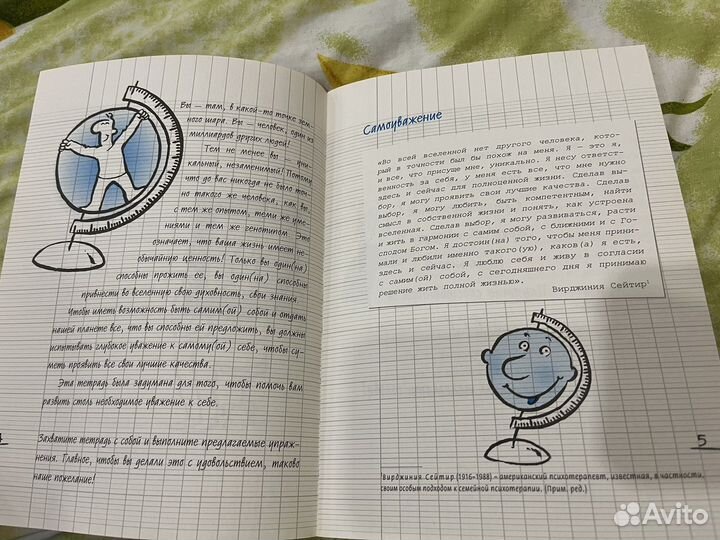 Вы — там, в какой-то точке зем-
ного шара. Вы — человек, один из
миллиардов других людей!
Тем не менее вы — уни-
кальный, незаменимый! Потому
что до вас никогда не было точ-
но такого же человека, как вы,
с тем же опытом, теми же уме-
ниями и тем же генотипом. Это
означает, что ваша жизнь имеет не-
обычайную ценность! Только вы один(на)
способны прожить ее, вы один(на) способны
привнести во вселенную свою духовность, свои знания.
Чтобы иметь возможность быть самим(ой) собой и отдать
нашей планете все, что вы способны ей предложить, вы должны
испытывать глубокое уважение к самому(ой) себе, чтобы су-
меть проявить все свои лучшие качества.
Эта тетрадь была задумана для того, чтобы помочь вам
развить столь необходимое уважение к себе.
Захватите тетрадь с собой и выполните предлагаемые упраж-
нения. Главное, чтобы вы делали это с удовольствием, таково
наше пожелание!
Самоуважение
«Во всей вселенной нет другого человека, кото-
рый в точности был бы похож на меня. Я — это я,
и все, что присуще мне, уникально. Я несу ответст-
венность за себя, у меня есть все, что мне нужно
здесь и сейчас для полноценной жизни. Сделав вы-
бор, я могу проявить свои лучшие качества. Сделав
выбор, я могу любить, быть компетентным, найти
смысл в собственной жизни и понять, как устроена
вселенная. Сделав выбор, я могу развиваться, расти
и жить в гармонии с самим собой, с ближними и с Го-
сподом Богом. Я достоин(на) того, чтобы меня прини-
мали и любили именно такого(ую), каков(а) я есть,
здесь и сейчас. Я люблю себя и живу в согласии
с самим(ой) собой, с сегодняшнего дня я принимаю
решение жить полной жизнью».
Вирджиния Сейтир¹
5
¹ Вирджиния Сейтир (1916–1988) – американский психотерапевт, известная, в частности,
своим особым подходом к семейной психотерапии. (Прим. ред.)
Avito